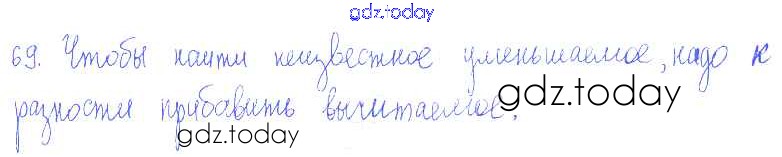 gdz.today
69. Чтобы найти неизвестное уменьшаемое, надо к
разности прибавить вычитаемое.
gdz.today
gdz.today